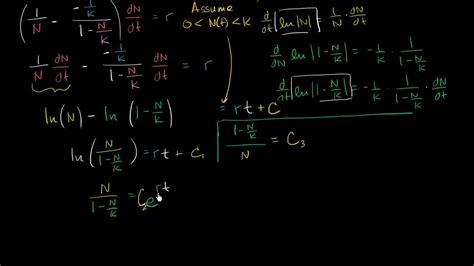 (1/N - (-1/K)/(1-N/K)) dN/dt = r
Assume
0 < N(t) < K
d/dt ln|N| = 1/N · dN/dt
1/N dN/dt - (-1/K)/(1-N/K) dN/dt = r
d/dt ln|1-N/K| = -1/K · 1/(1-N/K)
ln(N) - ln(1-N/K) = rt + C
d/dt ln|1-N/K| = -1/K · 1/(1-N/K) · dN/dt
ln(N/(1-N/K)) = rt + C₁
(1-N/K)/N = C₃
N/(1-N/K) = C₂e^rt